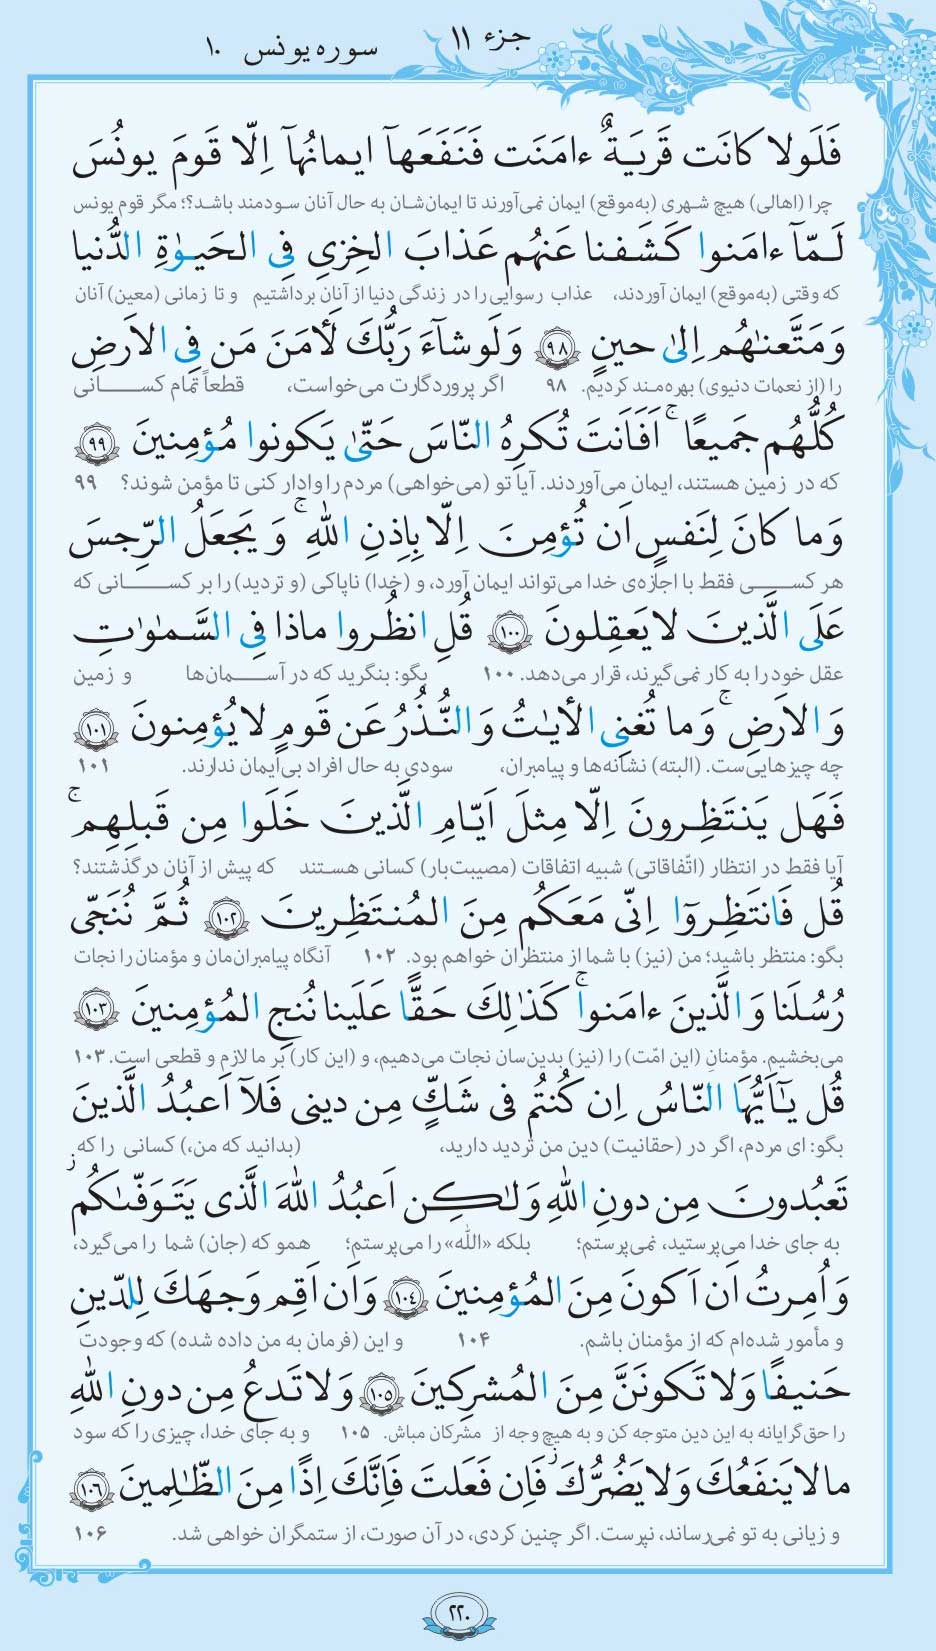 جزء ۱۱
سوره یونس ۱۰
فَلَولا كانَت قَريَةٌ ءامَنَت فَنَفَعَهآ ايمانُهآ اِلّا قَومَ يونُسَ
چرا (اهالی) هیچ شهری (به‌موقع) ایمان نمی‌آورند تا ایمان‌شان به حال آنان سودمند باشد؟؛ مگر قوم یونس
لَمّآ ءامَنوا كَشَفنا عَنهُم عَذابَ الخِزىِ فِى الحَيوٰةِ الدُّنيا
که وقتی (به‌موقع) ایمان آوردند، عذاب رسوایی را در زندگی دنیا از آنان برداشتیم و تا زمانی (معین) آنان
وَمَتَّعنٰهُم اِلىٰ حينٍ ﴿۹۸﴾ وَلَو شآءَ رَبُّكَ لَأمَنَ مَن فِى الاَرضِ
را (از نعمات دنیوی) بهره‌مند کردیم. ۹۸ اگر پروردگارت می‌خواست، قطعاً تمام کسانی
كُلُّهُم جَميعًا ۚ اَفَاَنتَ تُكرِهُ النّاسَ حَتّىٰ يَكونوا مُؤمِنينَ ﴿۹۹﴾
که در زمین هستند، ایمان می‌آوردند. آیا تو (می‌خواهی) مردم را وادار کنی تا مؤمن شوند؟ ۹۹
وَما كانَ لِنَفسٍ اَن تُؤمِنَ اِلّا بِاِذنِ اللّٰهِ ۚ وَيَجعَلُ الرِّجسَ
هر کسی فقط با اجازه‌ی خدا می‌تواند ایمان آورد، و (خدا) ناپاکی (و تردید) را بر کسانی که
عَلَى الَّذينَ لا يَعقِلونَ ﴿۱۰۰﴾ قُلِ انظُروا ماذا فِى السَّمٰوٰتِ
عقل خود را به کار نمی‌گیرند، قرار می‌دهد. ۱۰۰ بگو: بنگرید که در آسمان‌ها و زمین
وَالاَرضِ ۚ وَما تُغنِى الأيٰتُ وَالنُّذُرُ عَن قَومٍ لا يُؤمِنونَ ﴿۱۰۱﴾
چه چیزهایی‌ست. (البته) نشانه‌ها و پیامبران، سودی به حال افراد بی‌ایمان ندارند. ۱۰۱
فَهَل يَنتَظِرونَ اِلّا مِثلَ اَيّامِ الَّذينَ خَلَوا مِن قَبلِهِم ۚ
آیا فقط در انتظار (اتّفاقاتی) شبیه اتفاقات (مصیبت‌بار) کسانی هستند که پیش از آنان درگذشتند؟
قُل فَانتَظِروٓا اِنّى مَعَكُم مِنَ المُنتَظِرينَ ﴿۱۰۲﴾ ثُمَّ نُنَجّى
بگو: منتظر باشید؛ من (نیز) با شما از منتظران خواهم بود. ۱۰۲ آنگاه پیامبران‌مان و مؤمنان را نجات
رُسُلَنا وَالَّذينَ ءامَنوا ۚ كَذٰلِكَ حَقًّا عَلَينا نُنجِ المُؤمِنينَ ﴿۱۰۳﴾
می‌بخشیم. مؤمنانِ (این امّت) را (نیز) بدین‌سان نجات می‌دهیم، و (این کار) بر ما لازم و قطعی است. ۱۰۳
قُل يٰٓاَيُّهَا النّاسُ اِن كُنتُم فى شَكٍّ مِن دينى فَلآ اَعبُدُ الَّذينَ
بگو: ای مردم، اگر در (حقانیت) دین من تردید دارید، (بدانید که من،) کسانی را که
تَعبُدونَ مِن دونِ اللّٰهِ وَلٰكِن اَعبُدُ اللّٰهَ الَّذى يَتَوَفّىٰكُم ۖ
به جای خدا می‌پرستید، نمی‌پرستم؛ بلکه «اللّٰه» را می‌پرستم؛ همو که (جان) شما را می‌گیرد،
وَاُمِرتُ اَن اَكونَ مِنَ المُؤمِنينَ ﴿۱۰۴﴾ وَاَن اَقِم وَجهَكَ لِلدّينِ
و مأمور شده‌ام که از مؤمنان باشم. ۱۰۴ و این (فرمان به من داده شده) که وجودت
حَنيفًا وَلا تَكونَنَّ مِنَ المُشرِكينَ ﴿۱۰۵﴾ وَلا تَدعُ مِن دونِ اللّٰهِ
را حق‌گرایانه به این دین متوجه کن و به هیچ وجه از مشرکان مباش. ۱۰۵ و به جای خدا، چیزی را که سود
ما لا يَنفَعُكَ وَلا يَضُرُّكَ ۖ فَاِن فَعَلتَ فَاِنَّكَ اِذًا مِنَ الظّٰلِمينَ ﴿۱۰۶﴾
و زیانی به تو نمی‌رساند، نپرست. اگر چنین کردی، در آن صورت، از ستمگران خواهی شد. ۱۰۶
۲۲۰